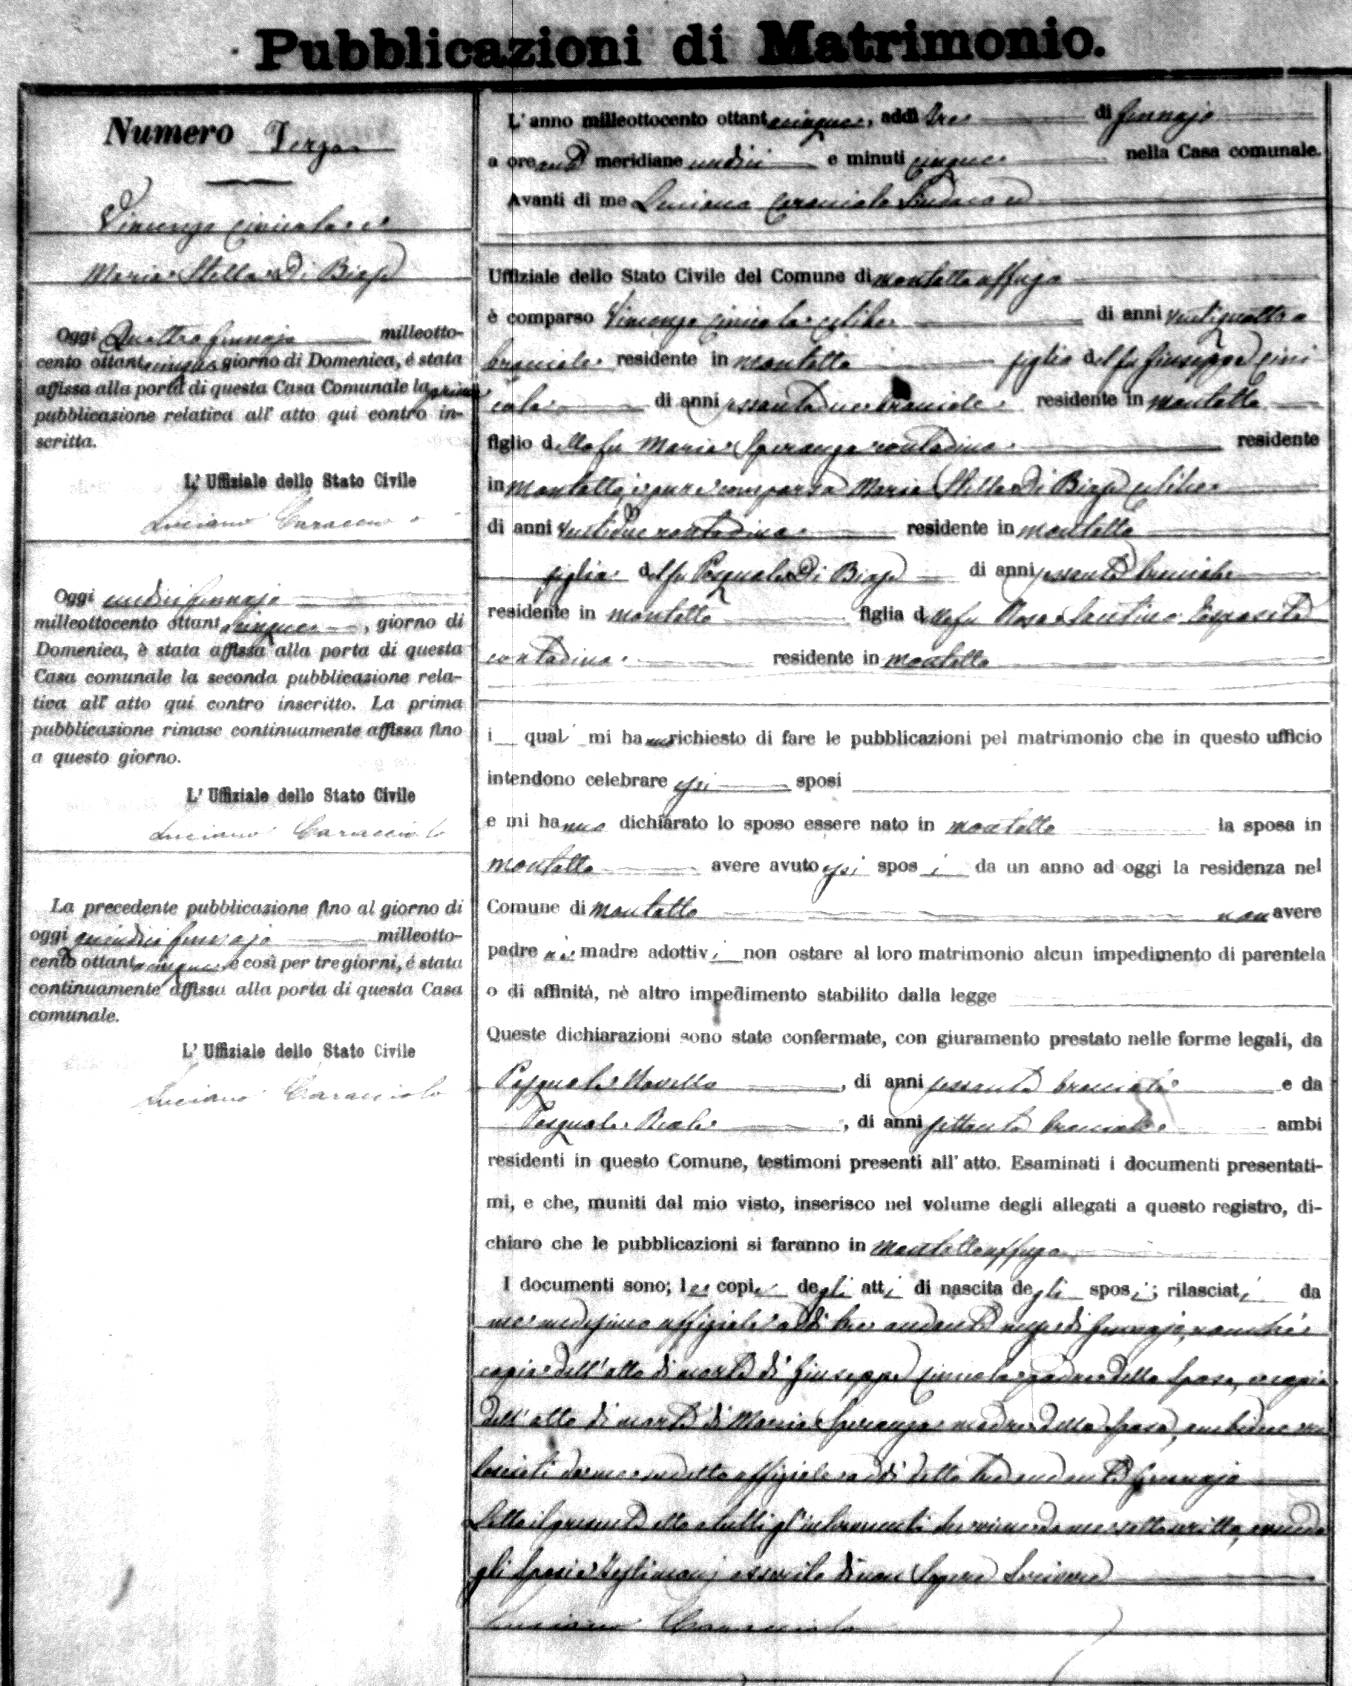 Pubblicazioni di Matrimonio.
Numero Terzo
Vincenzo Cinicola e
Maria Stella di Biase
Oggi Quattro Gennajo milleotto-
cento ottantacinque giorno di Domenica, é stata
affissa alla porta di questa Casa Comunale la prima
pubblicazione relativa all' atto qui contro in-
scritta.
L' Uffiziale dello Stato Civile
Luciano Caracciolo
Oggi undici Gennajo
milleottocento ottantacinque, giorno di
Domenica, è stata affissa alla porta di questa
Casa comunale la seconda pubblicazione rela-
tiva all' atto qui contro inscritto. La prima
pubblicazione rimase continuamente affissa fino
a questo giorno.
L' Uffiziale dello Stato Civile
Luciano Caracciolo
La precedente pubblicazione fino al giorno di
oggi quindici Gennajo milleotto-
cento ottantacinque e così per tre giorni, é stata
continuamente affissa alla porta di questa Casa
comunale.
L' Uffiziale dello Stato Civile
Luciano Caracciolo
L' anno milleottocento ottantacinque, addì tre di Gennajo
a ore anti meridiane undici e minuti cinque nella Casa comunale.
Avanti di me Luciano Caracciolo Sindaco ed
Uffiziale dello Stato Civile del Comune di Montalto uffugo
è comparso Vincenzo Cinicola celibe di anni ventiquattro
bracciale residente in Montalto figlio del fu Giuseppe Cini
cola di anni sessantadue bracciale residente in Montalto
figlio della fu Maria Speranza contadina residente
in Montalto è pure comparsa Maria Stella di Biase celibe
di anni ventidue contadina residente in Montalto
figlia del fu Pasquale di Biase di anni sessanta bracciale
residente in Montalto figlia della fu Rosa Santino Esposito
contadina residente in Montalto
i quali mi hanno richiesto di fare le pubblicazioni pel matrimonio che in questo ufficio
intendono celebrare essi sposi
e mi hanno dichiarato lo sposo essere nato in Montalto la sposa in
Montalto avere avuto essi sposi da un anno ad oggi la residenza nel
Comune di Montalto non avere
padre nè madre adottivi non ostare al loro matrimonio alcun impedimento di parentela
o di affinità, nè altro impedimento stabilito dalla legge
Queste dichiarazioni sono state confermate, con giuramento prestato nelle forme legali, da
Pasquale Novello, di anni sessanta bracciale e da
Pasquale Reale, di anni settanta bracciale ambi
residenti in questo Comune, testimoni presenti all' atto. Esaminati i documenti presentati-
mi, e che, muniti dal mio visto, inserisco nel volume degli allegati a questo registro, di-
chiaro che le pubblicazioni si faranno in Montalto uffugo
I documenti sono; le copie degli atti di nascita degli sposi; rilasciati da
me medesimo uffiziale addì tre andante mese di Gennajo, nonchè
copia dell' atto di morte di Giuseppe Cinicola padre dello sposo, e copia
dell' atto di morte di Maria Speranza madre dello sposo, ambidue ri
lasciati da me sudetto uffiziale addì detto tre andante Gennajo
Letto il presente atto a tutti gl' intervenuti da me sottoscritto, avendo
gli sposi e testimonj asserito di non sapere scrivere
Luciano Caracciolo